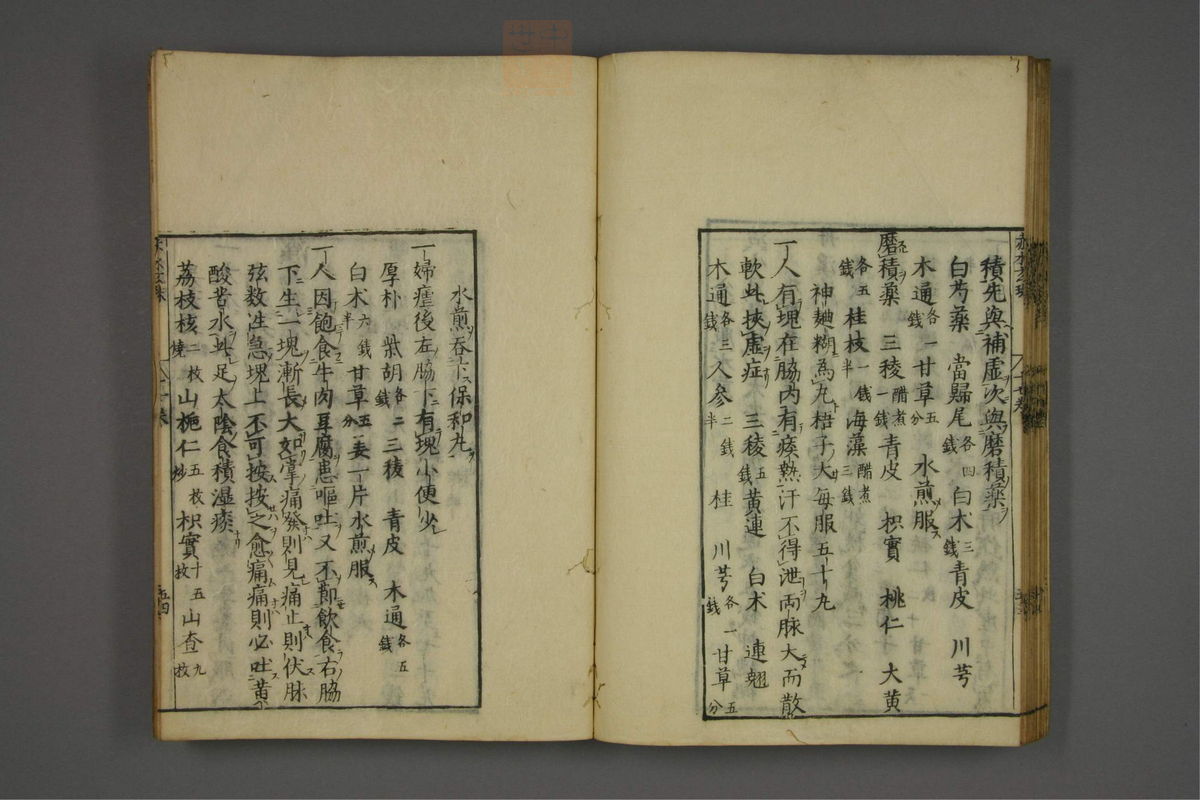 積先與補虛次與磨積藥
白芍藥 當歸尾各四錢 白朮三錢 青皮 川芎
木通各一錢 甘草五分 水煎服
磨積藥 三稜醋煮一錢 青皮 枳實 桃仁 大黃
各五錢 桂枝一錢半 海藻醋煮三錢
神麯糊為丸梧子大每服五十丸
一人有塊在脇內有痰熱汗不得泄兩脉大而散
軟此挾虛症 三稜五錢 黃連 白朮 連翹
木通各三錢 人參二錢半 桂 川芎各一錢 甘草五分
水煎吞下保和丸
一婦瘧後左脇下有塊小便少
厚朴 柴胡各二錢 三稜 青皮 木通各五錢
白朮六錢半 甘草五分 姜一片水煎服
一人因飽食牛肉豆腐患嘔吐又不節飲食右脇
下生一塊漸長大如掌痛發則見痛止則伏脉
弦数性急塊上不可按按之愈痛痛則必吐黃
酸苦水此足太陰食積湿痰
荔枝核二枚燒 山梔仁五枚炒 枳實十五枚 山查九枚
五十四